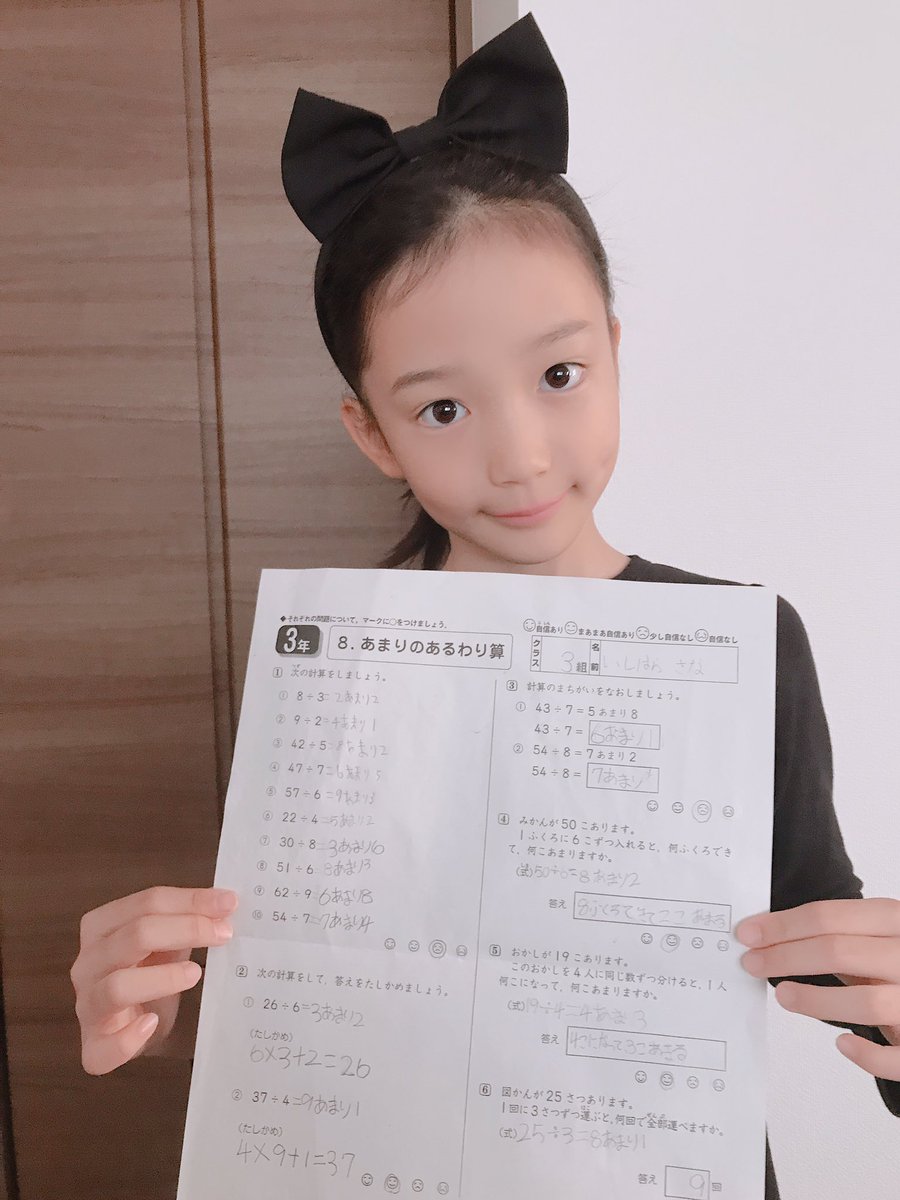 ◆それぞれの問題について、マークに○をつけましょう。
自信あり まあまあ自信あり 少し自信なし 自信なし
3年
8. あまりのあるわり算
クラス 3組 名前 いしはら さな
1 次の計算をしましょう。
① 8÷3=2あまり2
② 9÷2=4あまり1
③ 42÷5=8あまり2
④ 47÷7=6あまり5
⑤ 57÷6=9あまり3
⑥ 22÷4=5あまり2
⑦ 30÷8=3あまり6
⑧ 51÷6=8あまり3
⑨ 62÷9=6あまり8
⑩ 54÷7=7あまり4
2 次の計算をして、答えをたしかめましょう。
① 26÷6=3あまり2
(たしかめ)
6×3+2=26
② 37÷4=9あまり1
(たしかめ)
4×9+1=37
3 計算のまちがいをなおしましょう。
① 43÷7=5あまり8
43÷7=6あまり1
② 54÷8=7あまり2
54÷8=7あまり
4 みかんが50こあります。
1ふくろに6こずつ入れると、何ふくろでき
て、何こあまりますか。
(式)50÷6=8あまり2
答え 8ふくろできて2こ あまる
5 おかしが19こあります。
このおかしを4人に同じ数ずつ分けると、1人
何こになって、何こあまりますか。
(式)19÷4=4あま 3
答え 4こになって3こあまる
6 図かんが25さつあります。
1回に3さつずつ運ぶと、何回で全部運べますか。
(式)25÷3=8あまり1
答え 9回